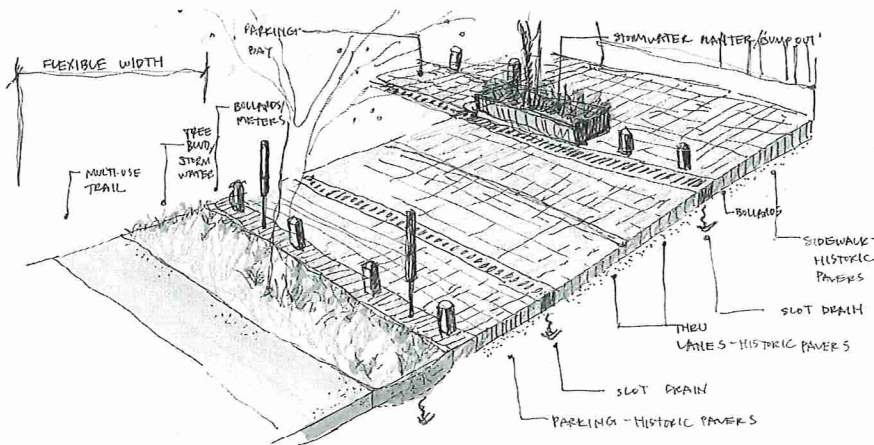 PARKING
BAY
STORMWATER PLANTER/BUMPOUT
FLEXIBLE WIDTH
BOLLARDS/
METERS
TREE
BLVD,
STORM
WATER
MULTI-USE
TRAIL
BOLLARDS
SIDEWALK-
HISTORIC
PAVERS
SLOT DRAIN
THRU
LANES-HISTORIC PAVERS
SLOT DRAIN
PARKING - HISTORIC PAVERS